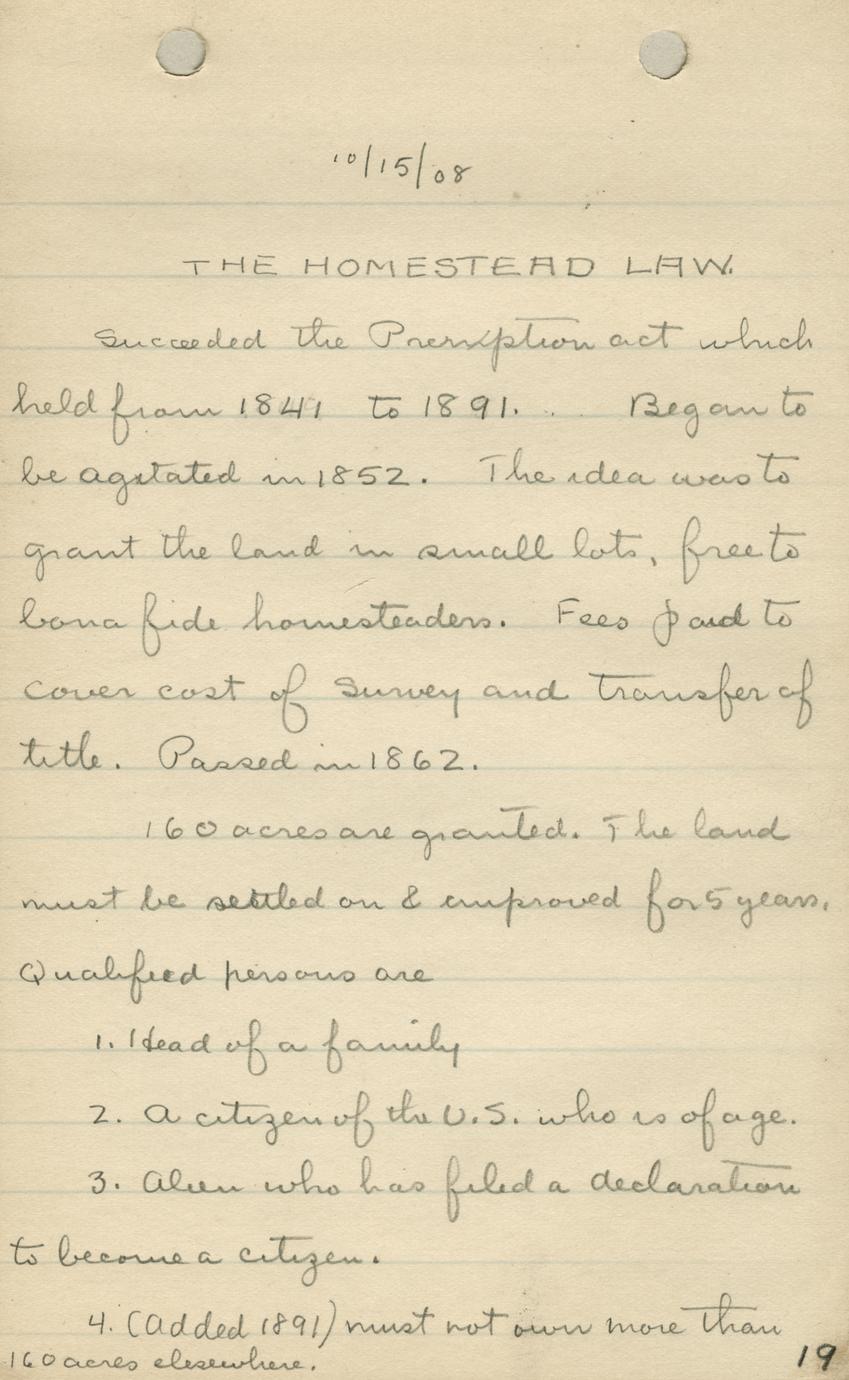 10/15/08
THE HOMESTEAD LAW.
Succeeded the Preemption act which
held from 1841 to 1891. . . Began to
be agitated in 1852. The idea was to
grant the land in small lots, free to
bona fide homesteaders. Fees paid to
cover cost of survey and transfer of
title. Passed in 1862.
160 acres are granted. The land
must be settled on & improved for 5 years.
Qualified persons are
1. Head of a family
2. A citizen of the U.S. who is of age.
3. Alien who has filed a declaration
to become a citizen.
4. (Added 1891) must not own more than
160 acres elsewhere.
19